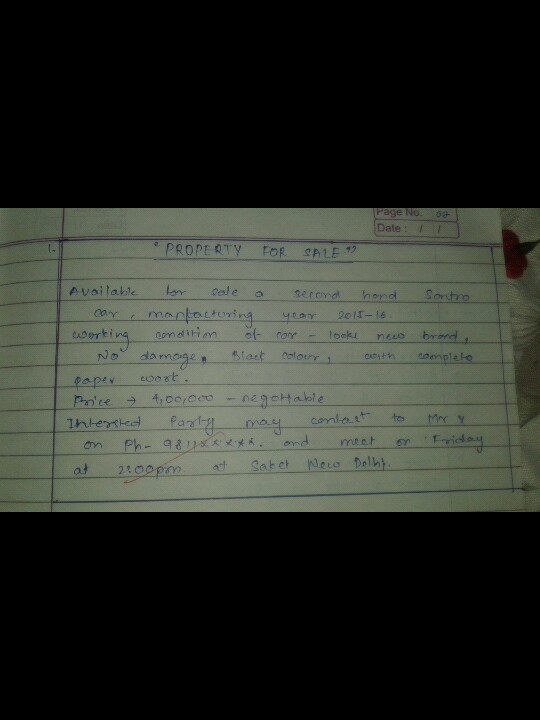 Page No. 02
Date: / /
1. "PROPERTY FOR SALE"
Available for sale a second hand Santro
car, manfacturing year 2015-16.
working condition of car - looks new brand,
No damage, Black colour, with complete
paper work.
Price → 4,00,000 - negotiable
Intersted Party may contact to Mr X
on Ph- 9811xxxxxx. and meet on Friday
at 2:00pm at Saket New Delhi.